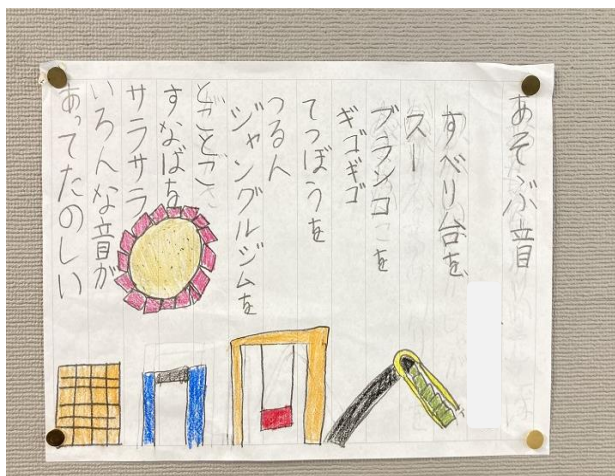 あそぶ音
すべり台を
スー
ブランコを
ギゴギゴ
てつぼうを
つるん
ジャングルジムを
とことこ
すなばを
サラサラ
いろんな音が
あってたのしい